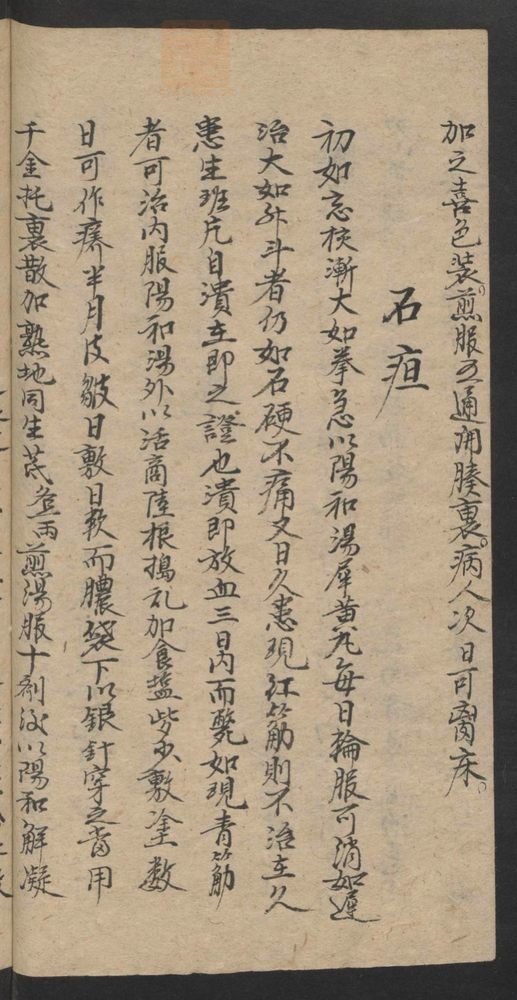 加之喜色装。煎服又通開腠裏。病人次日可离床。
石疽
初如惡核漸大如拳急以陽和湯犀黄丸每日輪服可消如遲
治大如升斗者仍如石硬不痛又日久患現紅筋則不治主久
患生班片自潰在即之證也潰即放血三日内而斃如現青筋
者可治内服陽和湯外以活商陸根搗乱加食塩些少敷塗数
日可作癢半月皮皺日敷日軟而膿襲下以銀針穿之當用
千金托裏散加熟地同生芪壹両煎湯服十剤後以陽和解凝